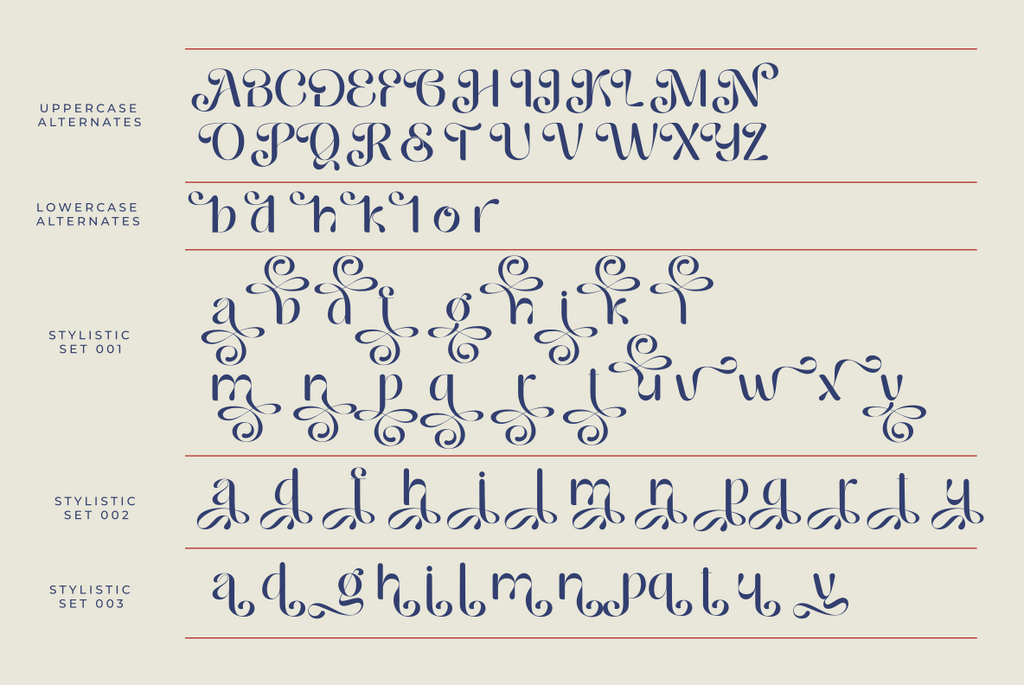 UPPERCASE
ALTERNATES
ABCDEFGHIJKLMN
OPQRSTUVWXYZ
LOWERCASE
ALTERNATES
bdhklor
STYLISTIC
SET 001
abdfghikl
mnpqrtuvwxy
STYLISTIC
SET 002
adfhilmnpqrtu
STYLISTIC
SET 003
adghilmnpqtuy